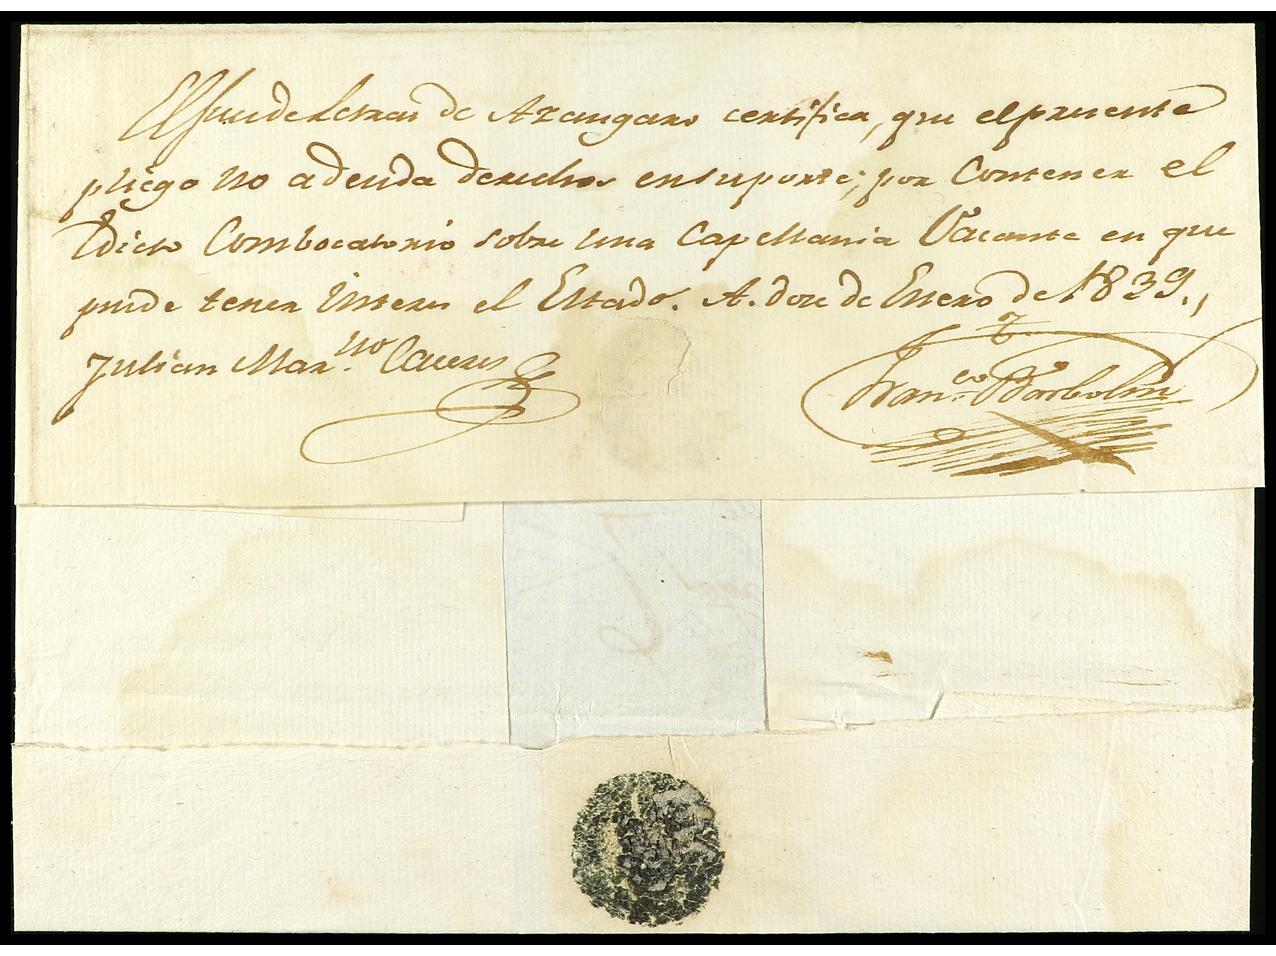 El Jues de Letras de Azangaro certifica, que el presente
pliego no adeuda derechos en su porte; por Contener el
Edicto Combocatorio sobre una Capellania Vacante en que
puede tener Interes el Estado. A. dose de Enero de 1839.,
Julian Mar.no Caceres Fran.co Barbolin